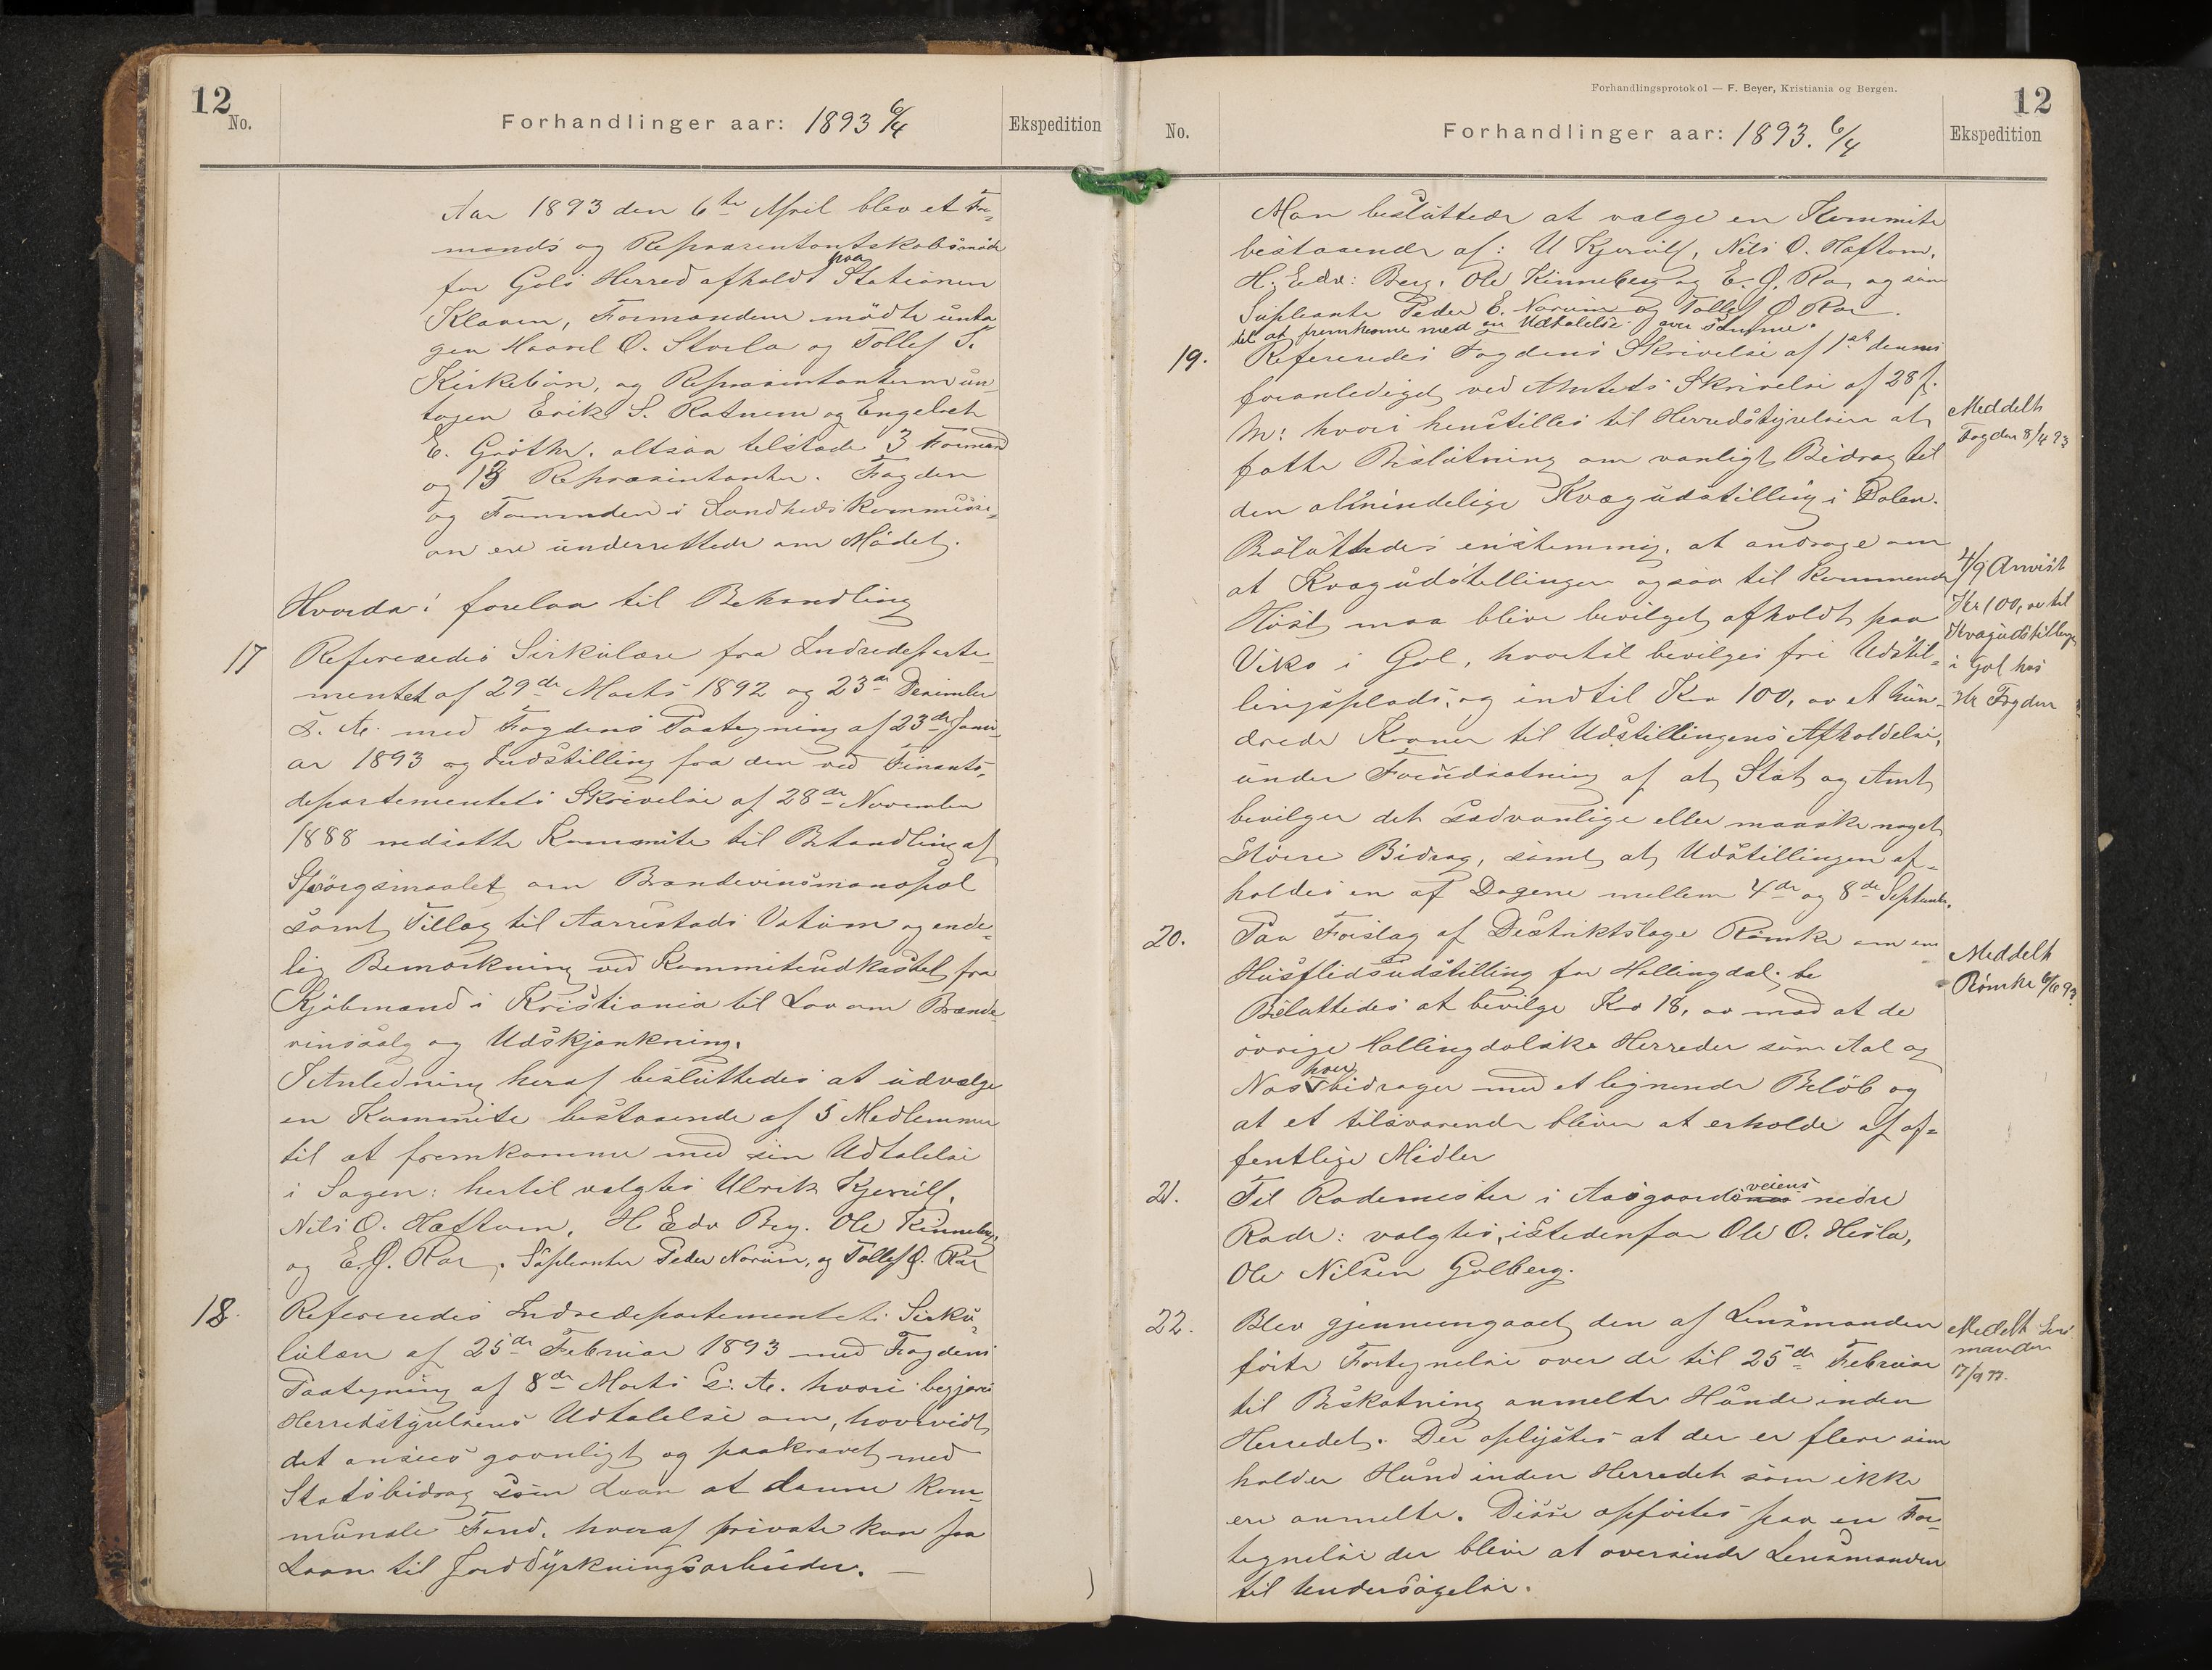 12
No.
Forhandlinger aar: 1893 6/4
Ekspedition
Aar 1893 den 6te April blev et For-
mands og Repræsentantskabsmøde
for Gols Herred afholdt paa Stationen
Klaven, Formændene mødte unta
gen Haavel O. Storla og Tollef T.
Kirkebøn, og Repræsentanterne un
tagen Erik S. Rotnem og Engebret
E. Grøthe, altsaa tilstede 3 Formænd
og 13 Repræsentanter. Fogden
og Formanden i Sundhedskommissi-
on ere underrettede om Mødet.
Hvorda: forelaa til Behandling
17
Refereredes Sirkulære fra Indredeparte-
mentet af 29de Marts 1892 og 23de Desember
s. A. med Fogdens Paategning af 23de Janu-
ar 1893 og Indstilling fra den ved Finants-
departementets Skrivelse af 28de November
1888 nedsatte Kommite til Behandling af
Spørgsmaalet om Brændevinsmonopol
samt Tillæg til Aarrestads Votum og ende-
lig Bemærkning ved Kommiteudkastet fra
Kjøbmænd i Kristiania til Lov om Brænde-
vinssalg og Udskjænkning.
I Anledning heraf besluttedes at udvælge
en Kommite bestaaende af 5 Medlemmer
til at fremkomme med sin Udtalelse
i Sagen: hertil valgtes Ulrik Kjerulf,
Nils O. Haftom, H Edv Berg. Ole Kinneberg,
og E. O. Roe. Supleanter Peder Norum, og Tollef O. Roe
18.
Refereredes Indredepartementets Sirku-
lulære af 25de Februar 1893 med Fogdens
Paategning af 8de Marts s. A. hvori begjæres
Herredstyrelsens Udtalelse om, hvorvidt
det ansees gavnligt og paakrævet med
Statsbidrag som Laan at danne kom-
munale Fond, hvoraf private kan faa
Laan til Jorddyrkningsarbeider. —
Forhandlingsprotokol — F. Beyer, Kristiania og Bergen.
12
No.
Forhandlinger aar: 1893. 6/4
Ekspedition
Man besluttede at vælge en Kommite
bestaaende af: U Kjerulf, Nils O. Haftom,
H. Edv: Berg, Ole Kinneberg og E. O. Roe, og som
Supleanter Peder E. Norum og Tollef O Roe.
til at fremkomme med en Udtalelse over samme.
19.
Refereredes Fogdens Skrivelse af 1ste dennes
foranlediget ved Amtets Skrivelse af 28 f.
M: hvori henstilles til Herredstyrelsen at
fatte Beslutning om vanligt Bidrag til
den almindelige Kvægudstilling i Dalen.
Besluttedes enstemmig, at andrage om
at Kvægudstillingen ogsaa til kommende
Høst maa blive bevilget afholdt paa
Viko i Gol, hvortil bevilges fri Udstil-
lingsplads, og indtil Kr 100, oo et hun-
drede Kroner til Udstillingens Afholdelse,
under Forudsætning af at Stat og Amt
bevilger det sedvanlige eller maaske noget
større Bidrag, samt at Udstillingen af-
holdes en af Dagene mellem 4de og 8de September.
Meddelt
Fogden 8/4 93
4/9 Anvist
Kr 100, oo til
Kvægudstillingen
i Gol hos
Hr Fogden
20.
Paa Forslag af Distriktslæge Rømke om en
Husflidsudstilling for Hallingdal, be
Besluttedes at bevilge Kr 18, oo mod at de
øvrige Hallingdalske Herreder som Aal og
Næs hver bidrager med et lignende Beløb og
at et tilsvarende bliver at erholde af of-
fentlige Midler
Meddelt
Rømke 6/6 93.
21.
Til Rodemester i Aasgaardsveiens nedre
Rode: valgtes, istedenfor Ole O. Hesla,
Ole Nilsen Golberg.
22.
Blev gjennemgaaet den af Lensmanden
førte Fortegnelse over de til 25de Februar
til Beskatning anmeldte Hunde inden
Herredet. Der oplystes at der er flere som
holder Hund inden Herredet som ikke
ere anmeldte. Disse opførtes paa en For-
tegnelse der bliver at oversende Lensmanden
til Undersøgelse.
Meddelt Lens
manden